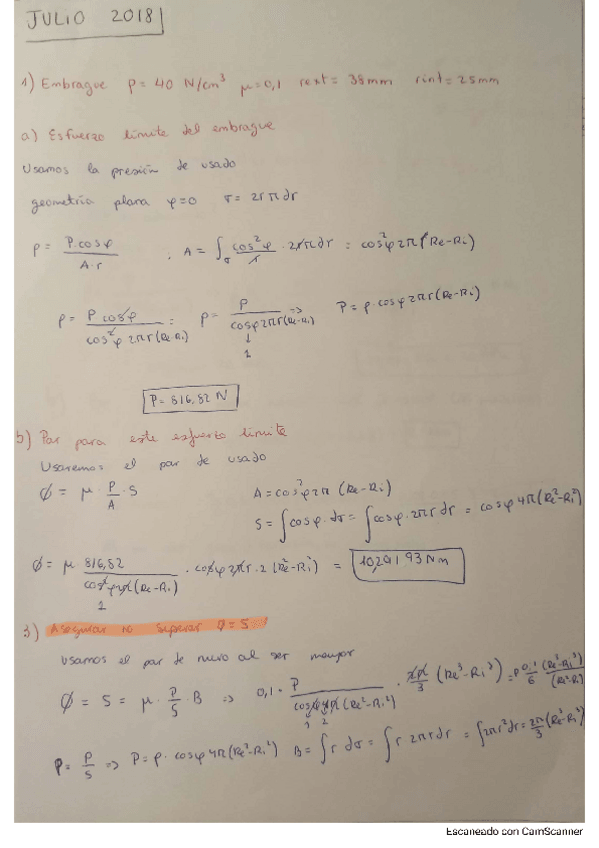 JULIO 2018
1) Embrague p = 40 N/cm³ μ = 0,1 rext = 38mm rint = 25mm
a) Esfuerzo límite del embrague
Usamos la presión de usado
geometría plana φ=0 σ = 2rπdr
p = P cosφ / A·r ; A = ∫σ cos²φ / r · 2rπdr = cos²φ2π(Re-Ri)
p = P cosφ / cos²φ 2πr(Re-Ri) = p = P / cosφ2πr(Re-Ri) => P = p·cosφ2πr(Re-Ri)
1
P = 816,82 N
b) Par para este esfuerzo límite
Usaremos el par de usado
Ø = μ · P/A · S A = cos²φ2π (Re-Ri)
S = ∫cosφ·dσ = ∫cosφ·2πrdr = cosφ 4π(Re²-Ri²)
Ø = μ 816,82 / cos²φ2π(Re-Ri) · cosφ2πr·2(Re²-Ri²) = 10,29193 Nm
1
3) Asegurar no superar Ø=5
Usamos el par de nuevo al ser mayor
Ø = 5 = μ · P/S · B => 0,1 · P / cosφ4π(Re²-Ri²) · 2π/3 (Re³-Ri³) = P 0,1/6 (Re³-Ri³)/(Re²-Ri²)
1 2
p = P/S => P = p·cosφ4π(Re²-Ri²) B = ∫r dσ = ∫r 2πrdr = ∫2πr²dr = 2π/3 (Re³-Ri³)
Escaneado con CamScanner